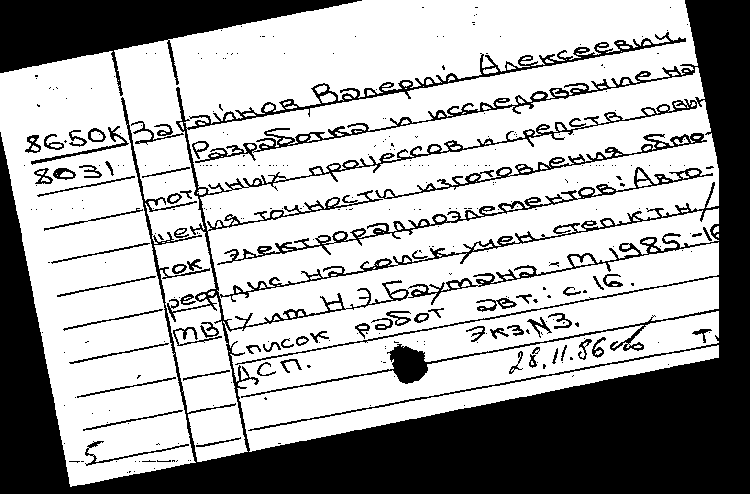 86-50К Загайнов, Валерий Алексеевич.
8031 Разработка и исследование на-
моточных процессов и средств повы-
шения точности изготовления обмо-
ток электрорадиоэлементов: Авто-
реф. дис. на соиск. учен. степ. к.т.н./
МВТУ им. Н.Э. Баумана. - М., 1985. -16
Список работ авт.: с. 16.
ДСП. Экз. №3.
28.11.86
5